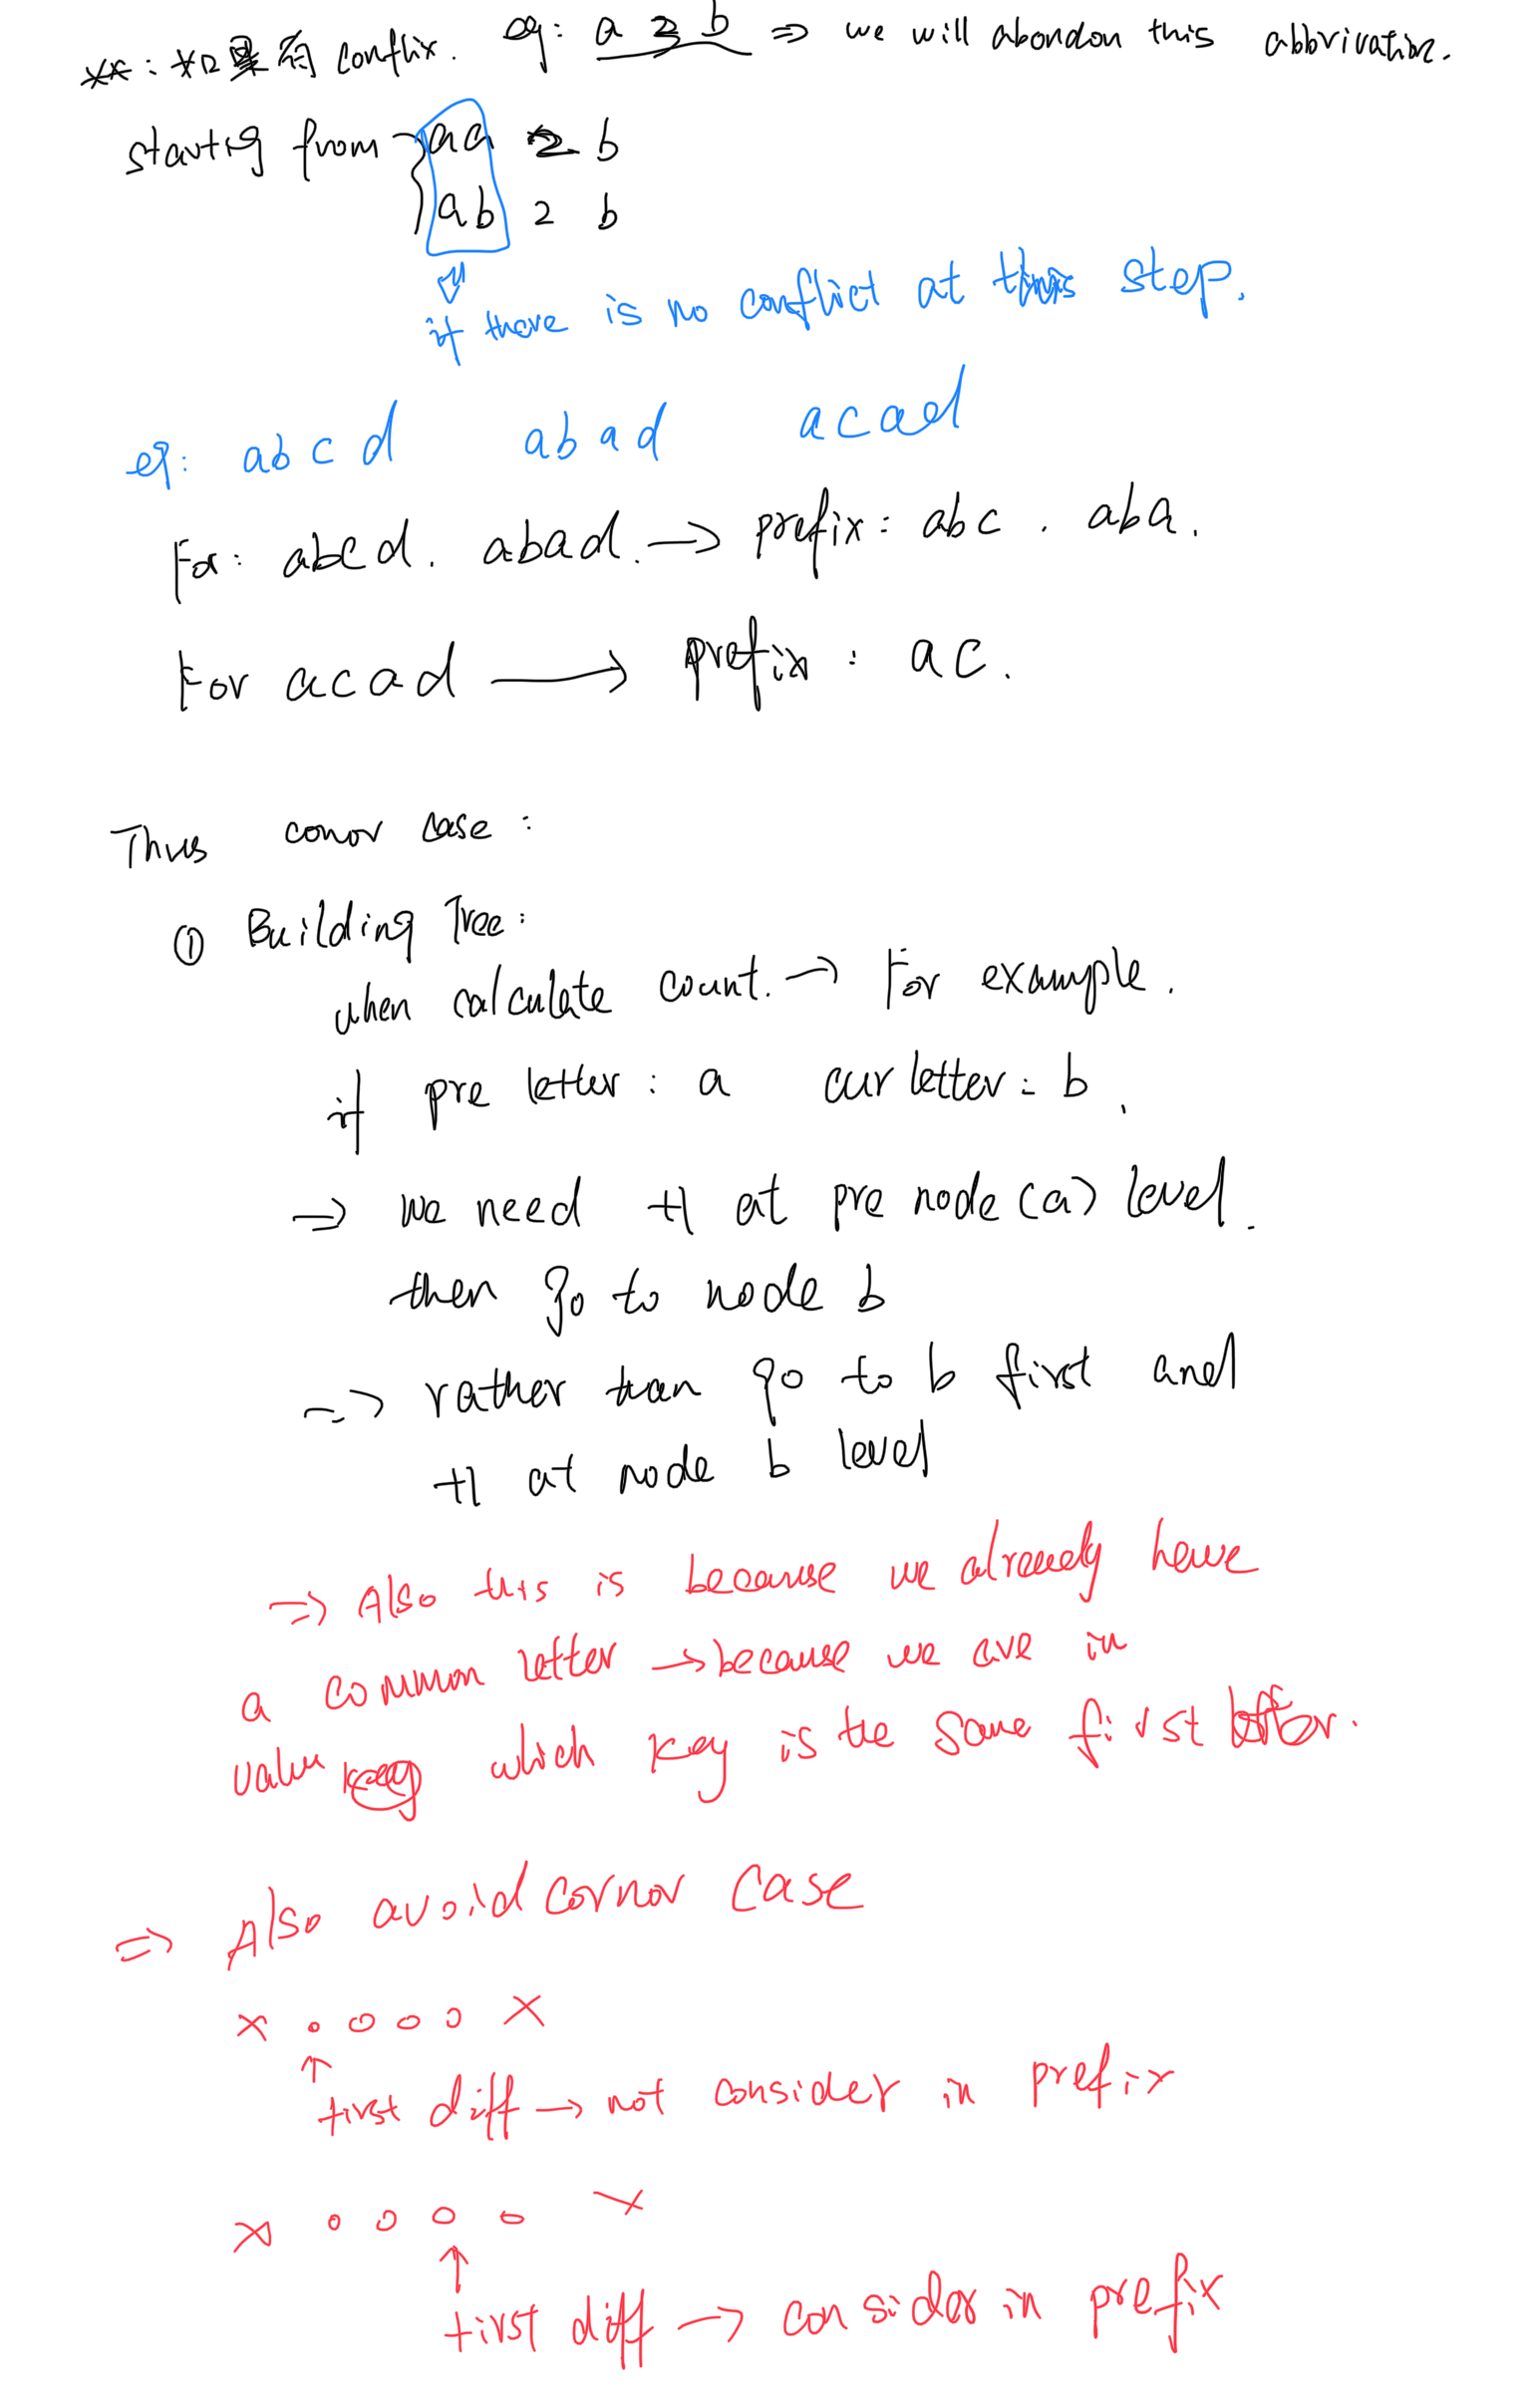 **: 如果有 conflix. eg: a 2 b ⇒ we will abondon this abbrivation.
starting from { aa 2 b
ab 2 b
if there is no conflict at this step.
eg: abcd abad acad
For: abcd. abad. → prefix: abc . aba.
For acad → prefix : ac.
Thus conor case :
① Building Tree:
when calculate count. → For example.
if pre letter : a cur letter : b .
⇒ we need +1 at pre node (a) level.
then go to node b
⇒ rather than go to b first and
+1 at node b level
⇒ Also this is because we already have
a common letter → because we are in
value which key is the same first letter.
⇒ Also avoid cornor case
x o o o o x
↑
first diff → not consider in prefix
x o o o o x
↑
first diff → consider in prefix